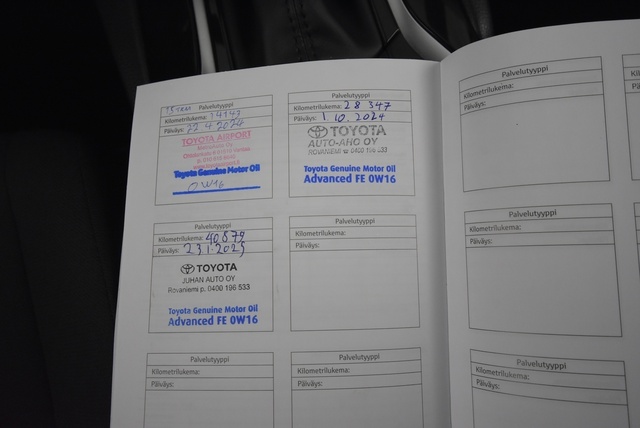 15 TKM Palvelutyyppi
Kilometrilukema: 14147
Päiväys: 22.4.2024
TOYOTA AIRPORT
Toyota Genuine Motor Oil
0W16
Palvelutyyppi
Kilometrilukema: 28 347
Päiväys: 1 10. 2024
TOYOTA
AUTO-AHO OY
ROVANIEMI ☎ 0400 196 533
Toyota Genuine Motor Oil
Advanced FE 0W16
Palvelutyyppi
Kilometrilukema:
Päiväys:
Palvelutyyppi
Kilometrilukema: 40879
Päiväys: 23.1.2025
TOYOTA
JUHAN AUTO OY
Rovaniemi p. 0400 196 533
Toyota Genuine Motor Oil
Advanced FE 0W16
Palvelutyyppi
Kilometrilukema:
Päiväys:
Palvelutyyppi
Kilometrilukema:
Päiväys:
Palvelutyyppi
Kilometrilukema:
Päiväys:
Palvelutyyppi
Kilometrilukema:
Päiväys:
Palvelutyyppi
Kilometrilukema:
Päiväys: